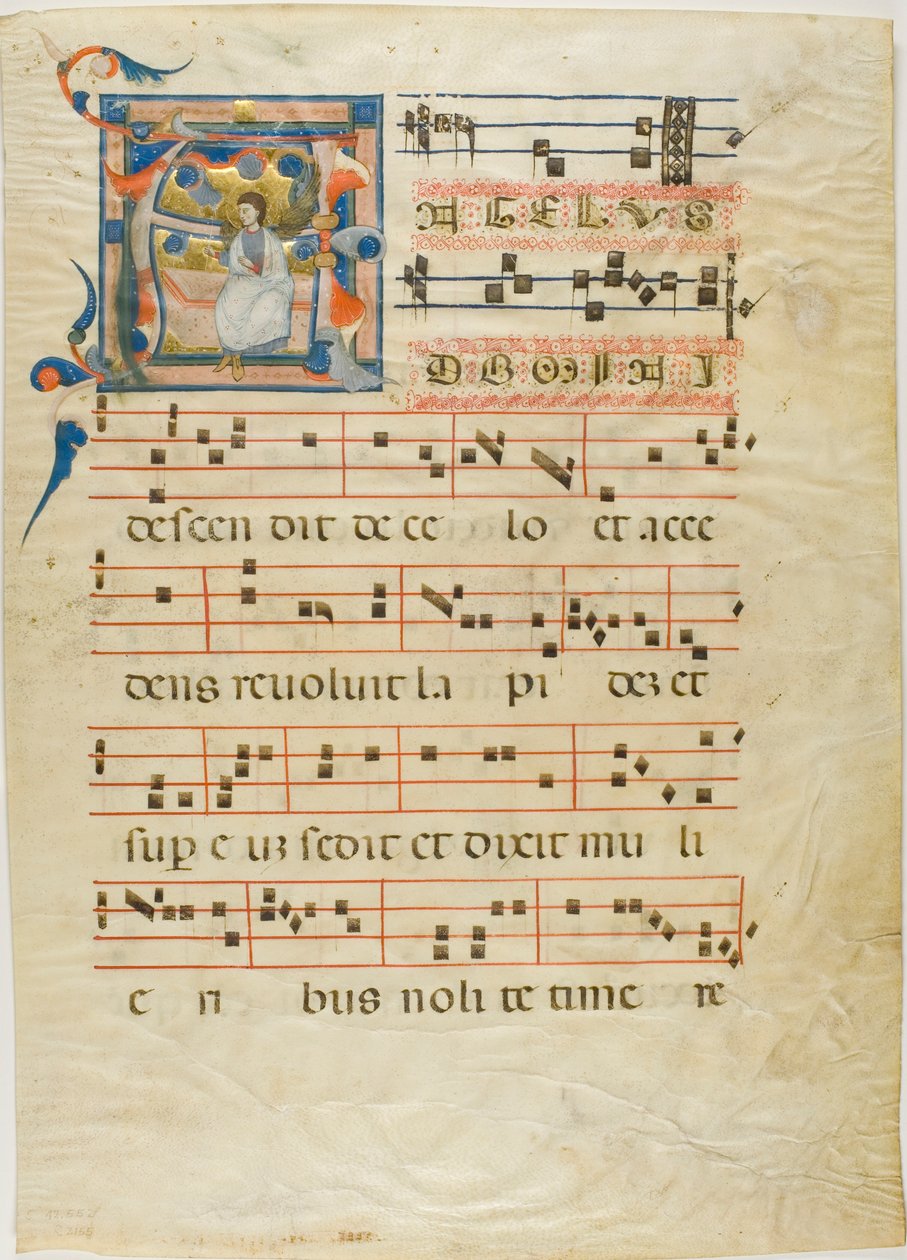 ANGELVS
DOMINI
descen dit de ce lo et acce
dens reuoluit la pi deʒ et
suꝑ e uʒ sedit et dixit mu li
e ri bus noli te time re